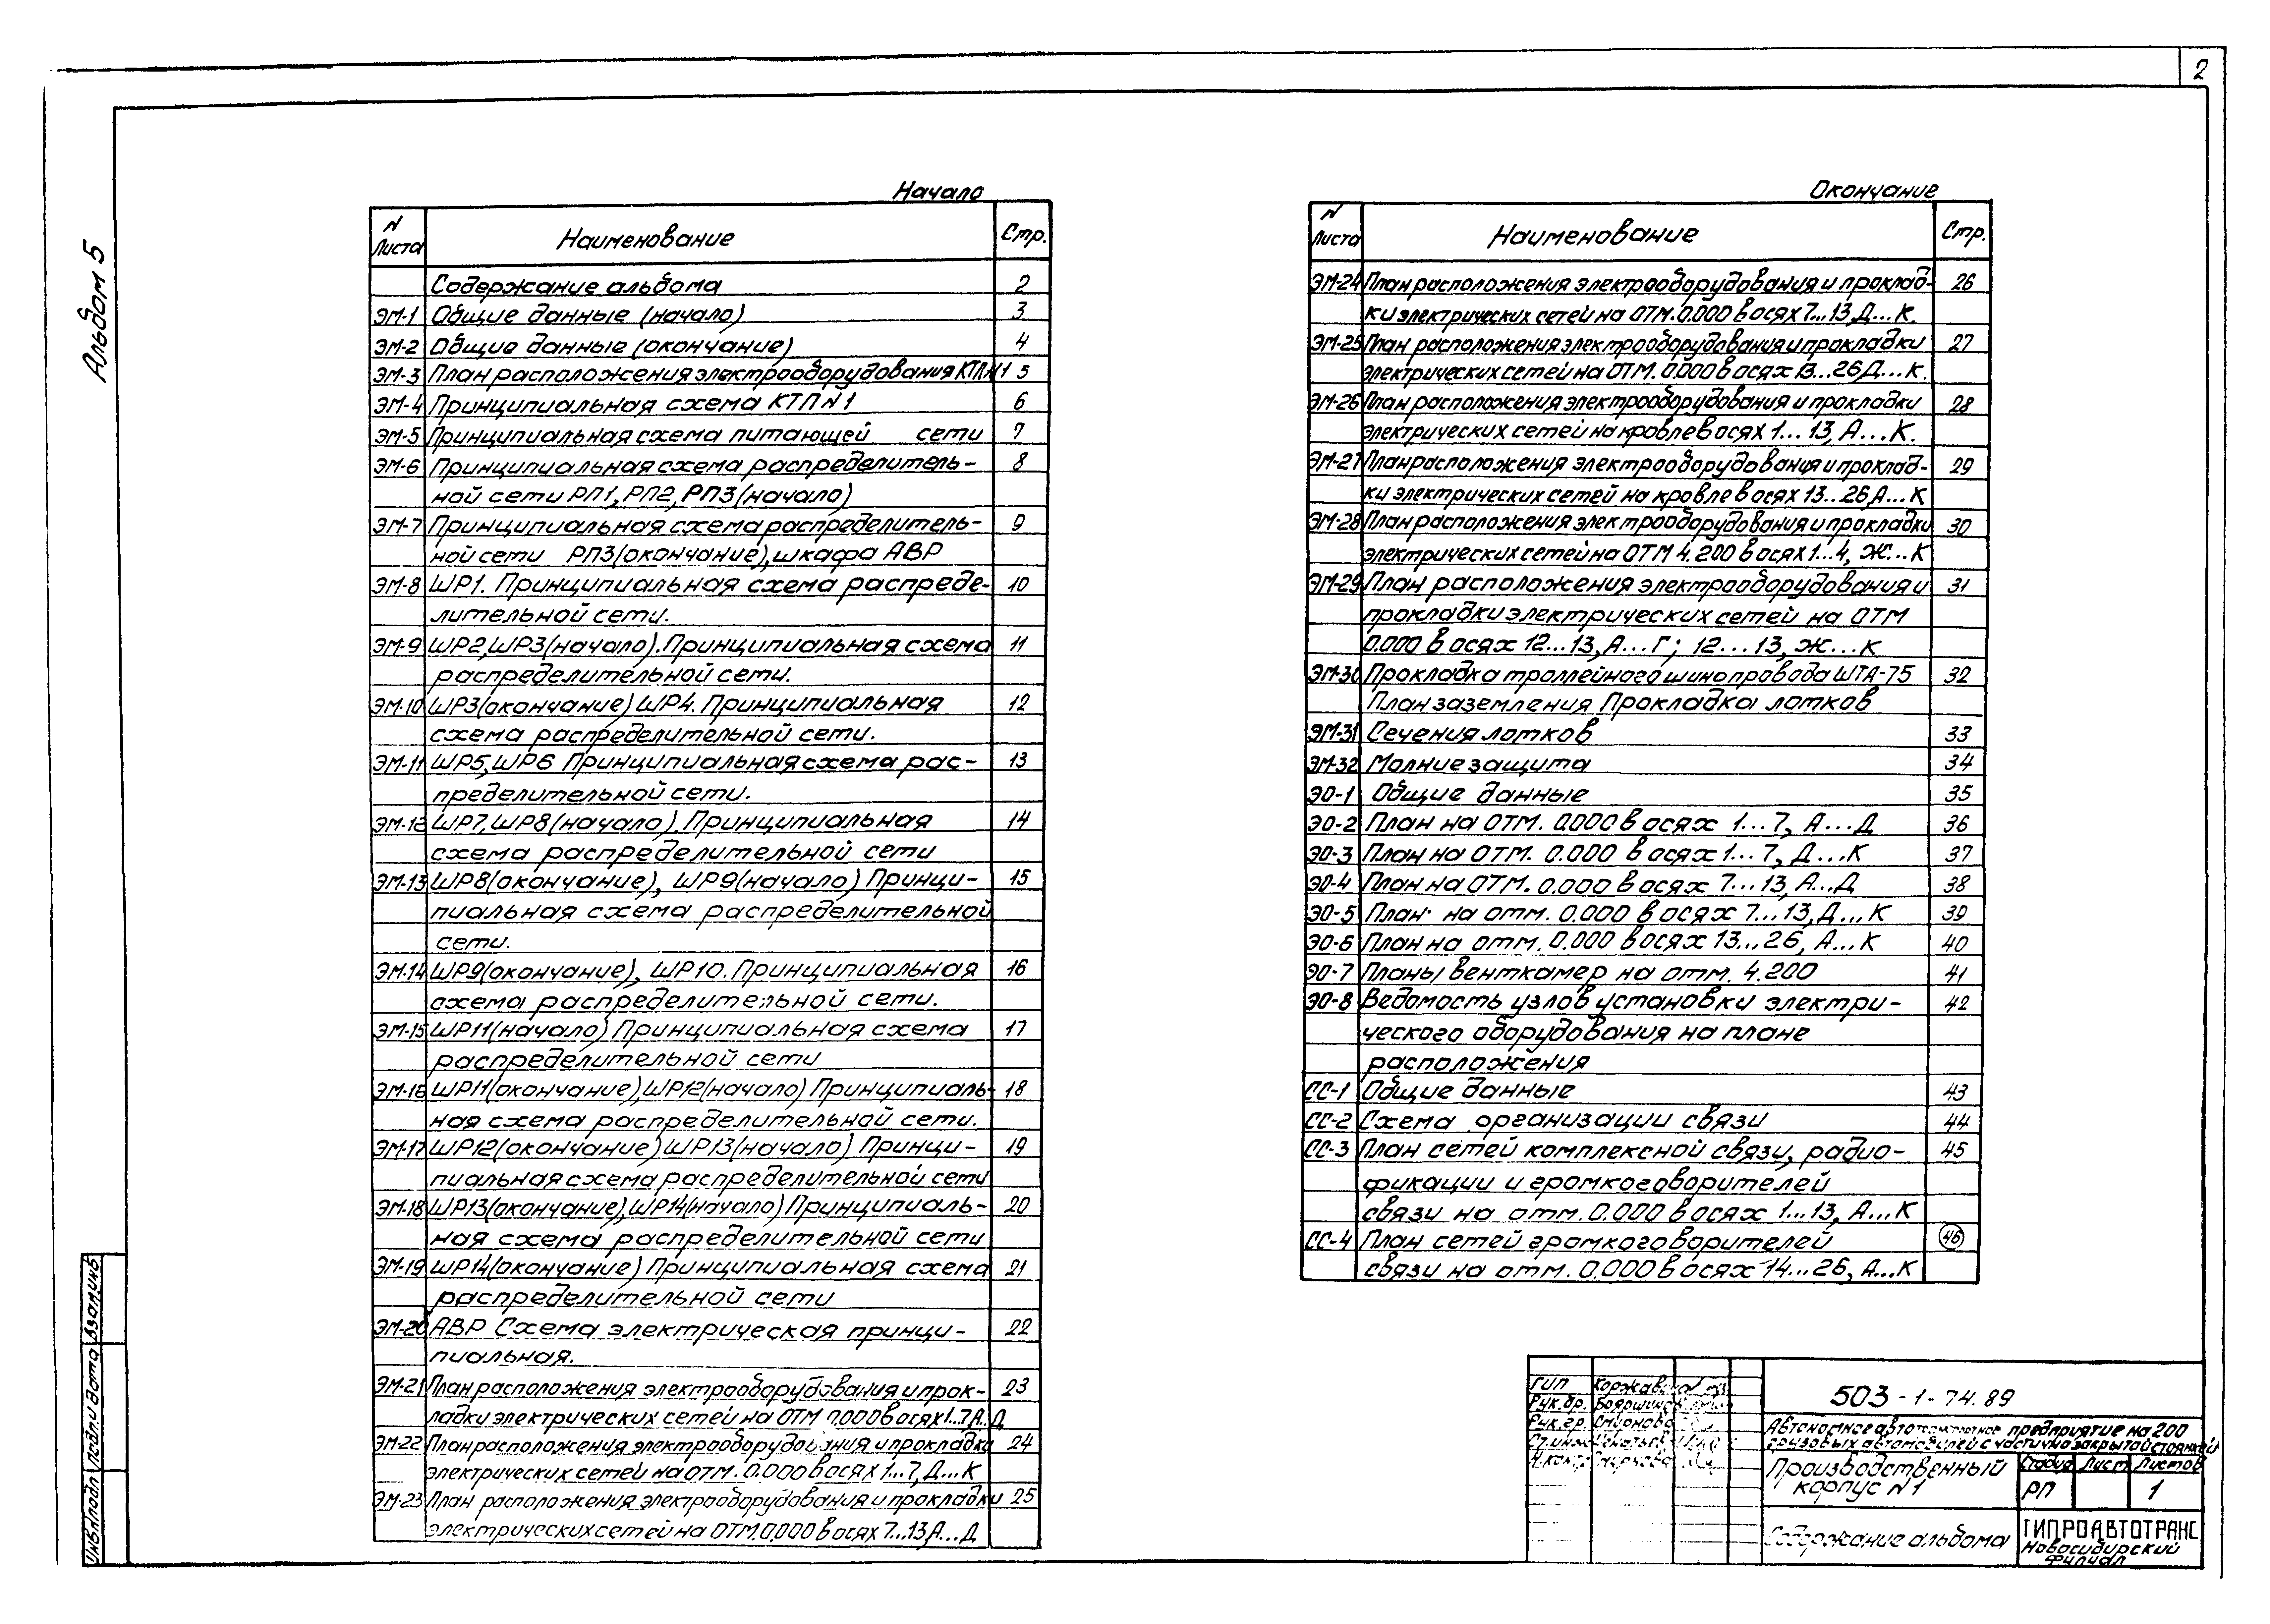 2
Альбом 5
Начало
N Листа Наименование Стр.
Содержание альбома 2
ЭМ-1 Общие данные (начало) 3
ЭМ-2 Общие данные (окончание) 4
ЭМ-3 План расположения электрооборудования КТП N1 5
ЭМ-4 Принципиальная схема КТП N1 6
ЭМ-5 Принципиальная схема питающей сети 7
ЭМ-6 Принципиальная схема распределитель- 8
ной сети РП1, РП2, РП3 (начало)
ЭМ-7 Принципиальная схема распределитель- 9
ной сети РП3 (окончание), шкафа АВР
ЭМ-8 ШР1. Принципиальная схема распреде- 10
лительной сети.
ЭМ-9 ШР2, ШР3 (начало). Принципиальная схема 11
распределительной сети.
ЭМ-10 ШР3 (окончание) ШР4. Принципиальная 12
схема распределительной сети.
ЭМ-11 ШР5, ШР6 Принципиальная схема рас- 13
пределительной сети.
ЭМ-12 ШР7, ШР8 (начало). Принципиальная 14
схема распределительной сети
ЭМ-13 ШР8 (окончание), ШР9 (начало) Принци- 15
пиальная схема распределительной
сети.
ЭМ-14 ШР9 (окончание), ШР10. Принципиальная 16
схема распределительной сети.
ЭМ-15 ШР11 (начало) Принципиальная схема 17
распределительной сети
ЭМ-16 ШР11 (окончание), ШР12 (начало) Принципиаль- 18
ная схема распределительной сети.
ЭМ-17 ШР12 (окончание) ШР13 (начало) Принци- 19
пиальная схема распределительной сети
ЭМ-18 ШР13 (окончание), ШР14 (начало) Принципиаль- 20
ная схема распределительной сети
ЭМ-19 ШР14 (окончание) Принципиальная схема 21
распределительной сети
ЭМ-20 АВР Схема электрическая принци- 22
пиальная.
ЭМ-21 План расположения электрооборудования и прок- 23
ладки электрических сетей на ОТМ 0.000 в осях 1...7, А...Д
ЭМ-22 План расположения электрооборудования и прокладки 24
электрических сетей на ОТМ. 0.000 в осях 1...7, Д...К
ЭМ-23 План расположения электрооборудования и прокладки 25
электрических сетей на ОТМ. 0.000 в осях 7...13 А...Д
Окончание
N Листа Наименование Стр.
ЭМ-24 План расположения электрооборудования и проклад- 26
ки электрических сетей на ОТМ. 0.000 в осях 7...13, Д...К.
ЭМ-25 План расположения электрооборудования и прокладки 27
электрических сетей на ОТМ. 0.000 в осях 13...26 Д...К.
ЭМ-26 План расположения электрооборудования и прокладки 28
электрических сетей на кровле в осях 1...13, А...К.
ЭМ-27 План расположения электрооборудования и проклад- 29
ки электрических сетей на кровле в осях 13...26, А...К
ЭМ-28 План расположения электрооборудования и прокладки 30
электрических сетей на ОТМ 4.200 в осях 1...4, Ж...К
ЭМ-29 План расположения электрооборудования и 31
прокладки электрических сетей на ОТМ
0.000 в осях 12...13, А...Г; 12...13, Ж...К
ЭМ-30 Прокладка троллейного шинопровода ШТА-75 32
План заземления Прокладка лотков
ЭМ-31 Сечения лотков 33
ЭМ-32 Молниезащита 34
ЭО-1 Общие данные 35
ЭО-2 План на ОТМ. 0.000 в осях 1...7, А...Д 36
ЭО-3 План на ОТМ. 0.000 в осях 1...7, Д...К 37
ЭО-4 План на ОТМ. 0.000 в осях 7...13, А...Д 38
ЭО-5 План на отм. 0.000 в осях 7...13, Д...К 39
ЭО-6 План на отм. 0.000 в осях 13...26, А...К 40
ЭО-7 Планы венткамер на отм. 4.200 41
ЭО-8 Ведомость узлов установки электри- 42
ческого оборудования на плане
расположения
СС-1 Общие данные 43
СС-2 Схема организации связи 44
СС-3 План сетей комплексной связи, радио- 45
фикации и громкоговорителей
связи на отм. 0.000 в осях 1...13, А...К
СС-4 План сетей громкоговорителей 46
связи на отм. 0.000 в осях 14...26, А...К
ГИП
Рук.бр.
Рук.гр. Смирнова
Ст.инж
Н.контр Смирнова
503-1-74.89
Автономное автотранспортное предприятие на 200
грузовых автомобилей с частично закрытой стоянкой
Производственный
корпус N1
Стадия Лист Листов
РП 1
Содержание альбома
ГИПРОАВТОТРАНС
Новосибирский
филиал
Взам.инв
Подп. и дата
Инв.N подл